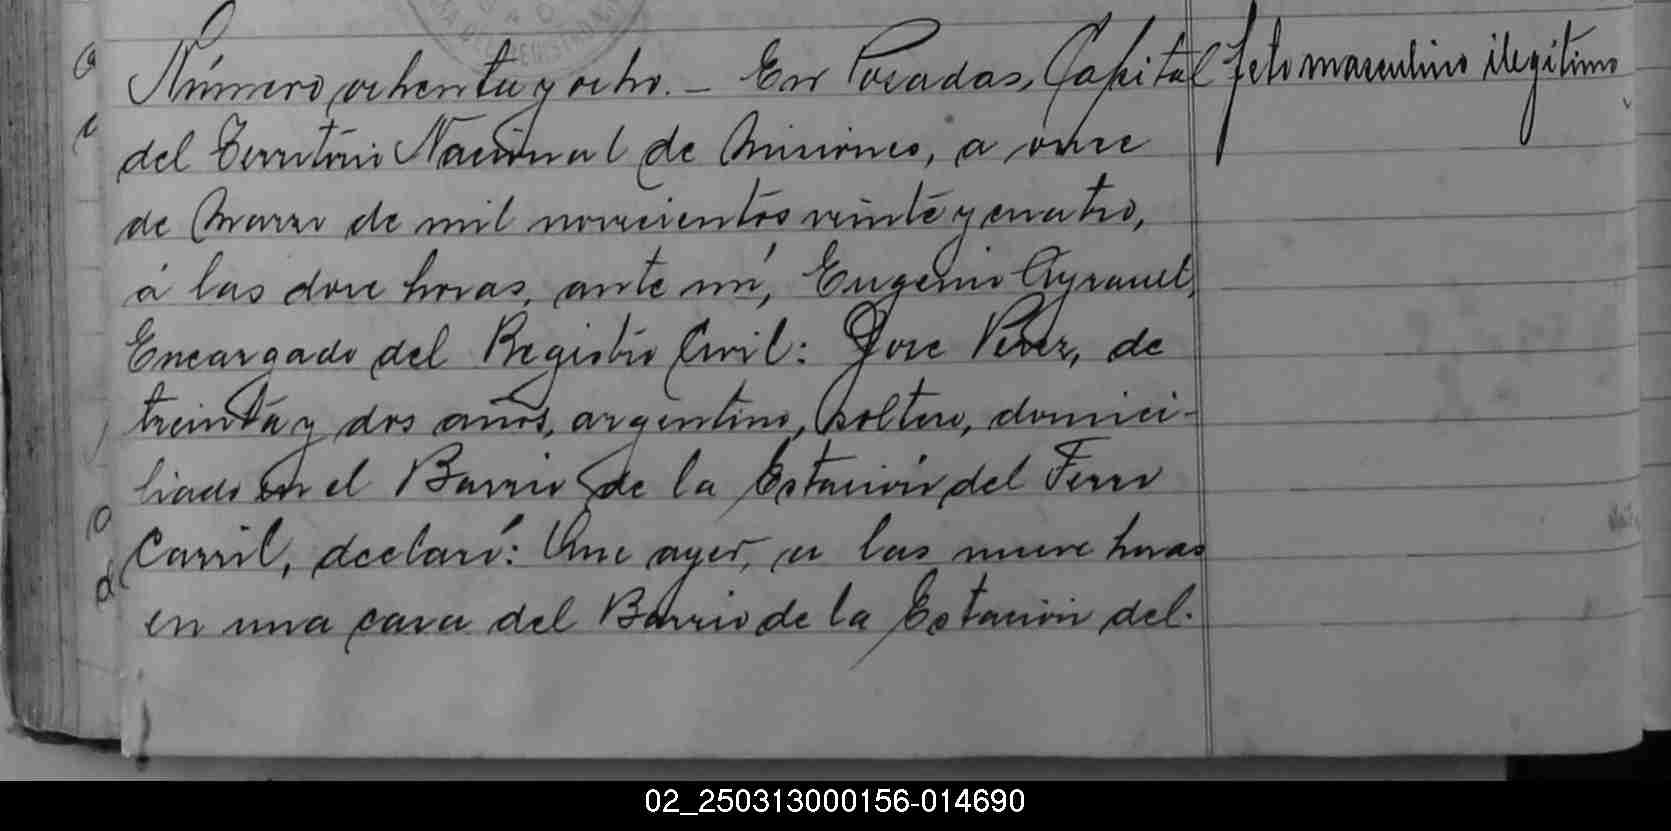 Número ochenta y ocho. — En Posadas, Capital
feto masculino ilegítimo
del Territorio Nacional de Misiones, a once
de Marzo de mil novecientos veinte y cuatro,
á las doce horas, ante mí, Eugenio Ayrault,
Encargado del Registro Civil: Jose Perez, de
treinta y dos años, argentino, soltero, domici-
liado en el Barrio de la Estación del Ferro
Carril, declaró: Que ayer, a las nueve horas
en una casa del Barrio de la Estación del.
02_250313000156-014690